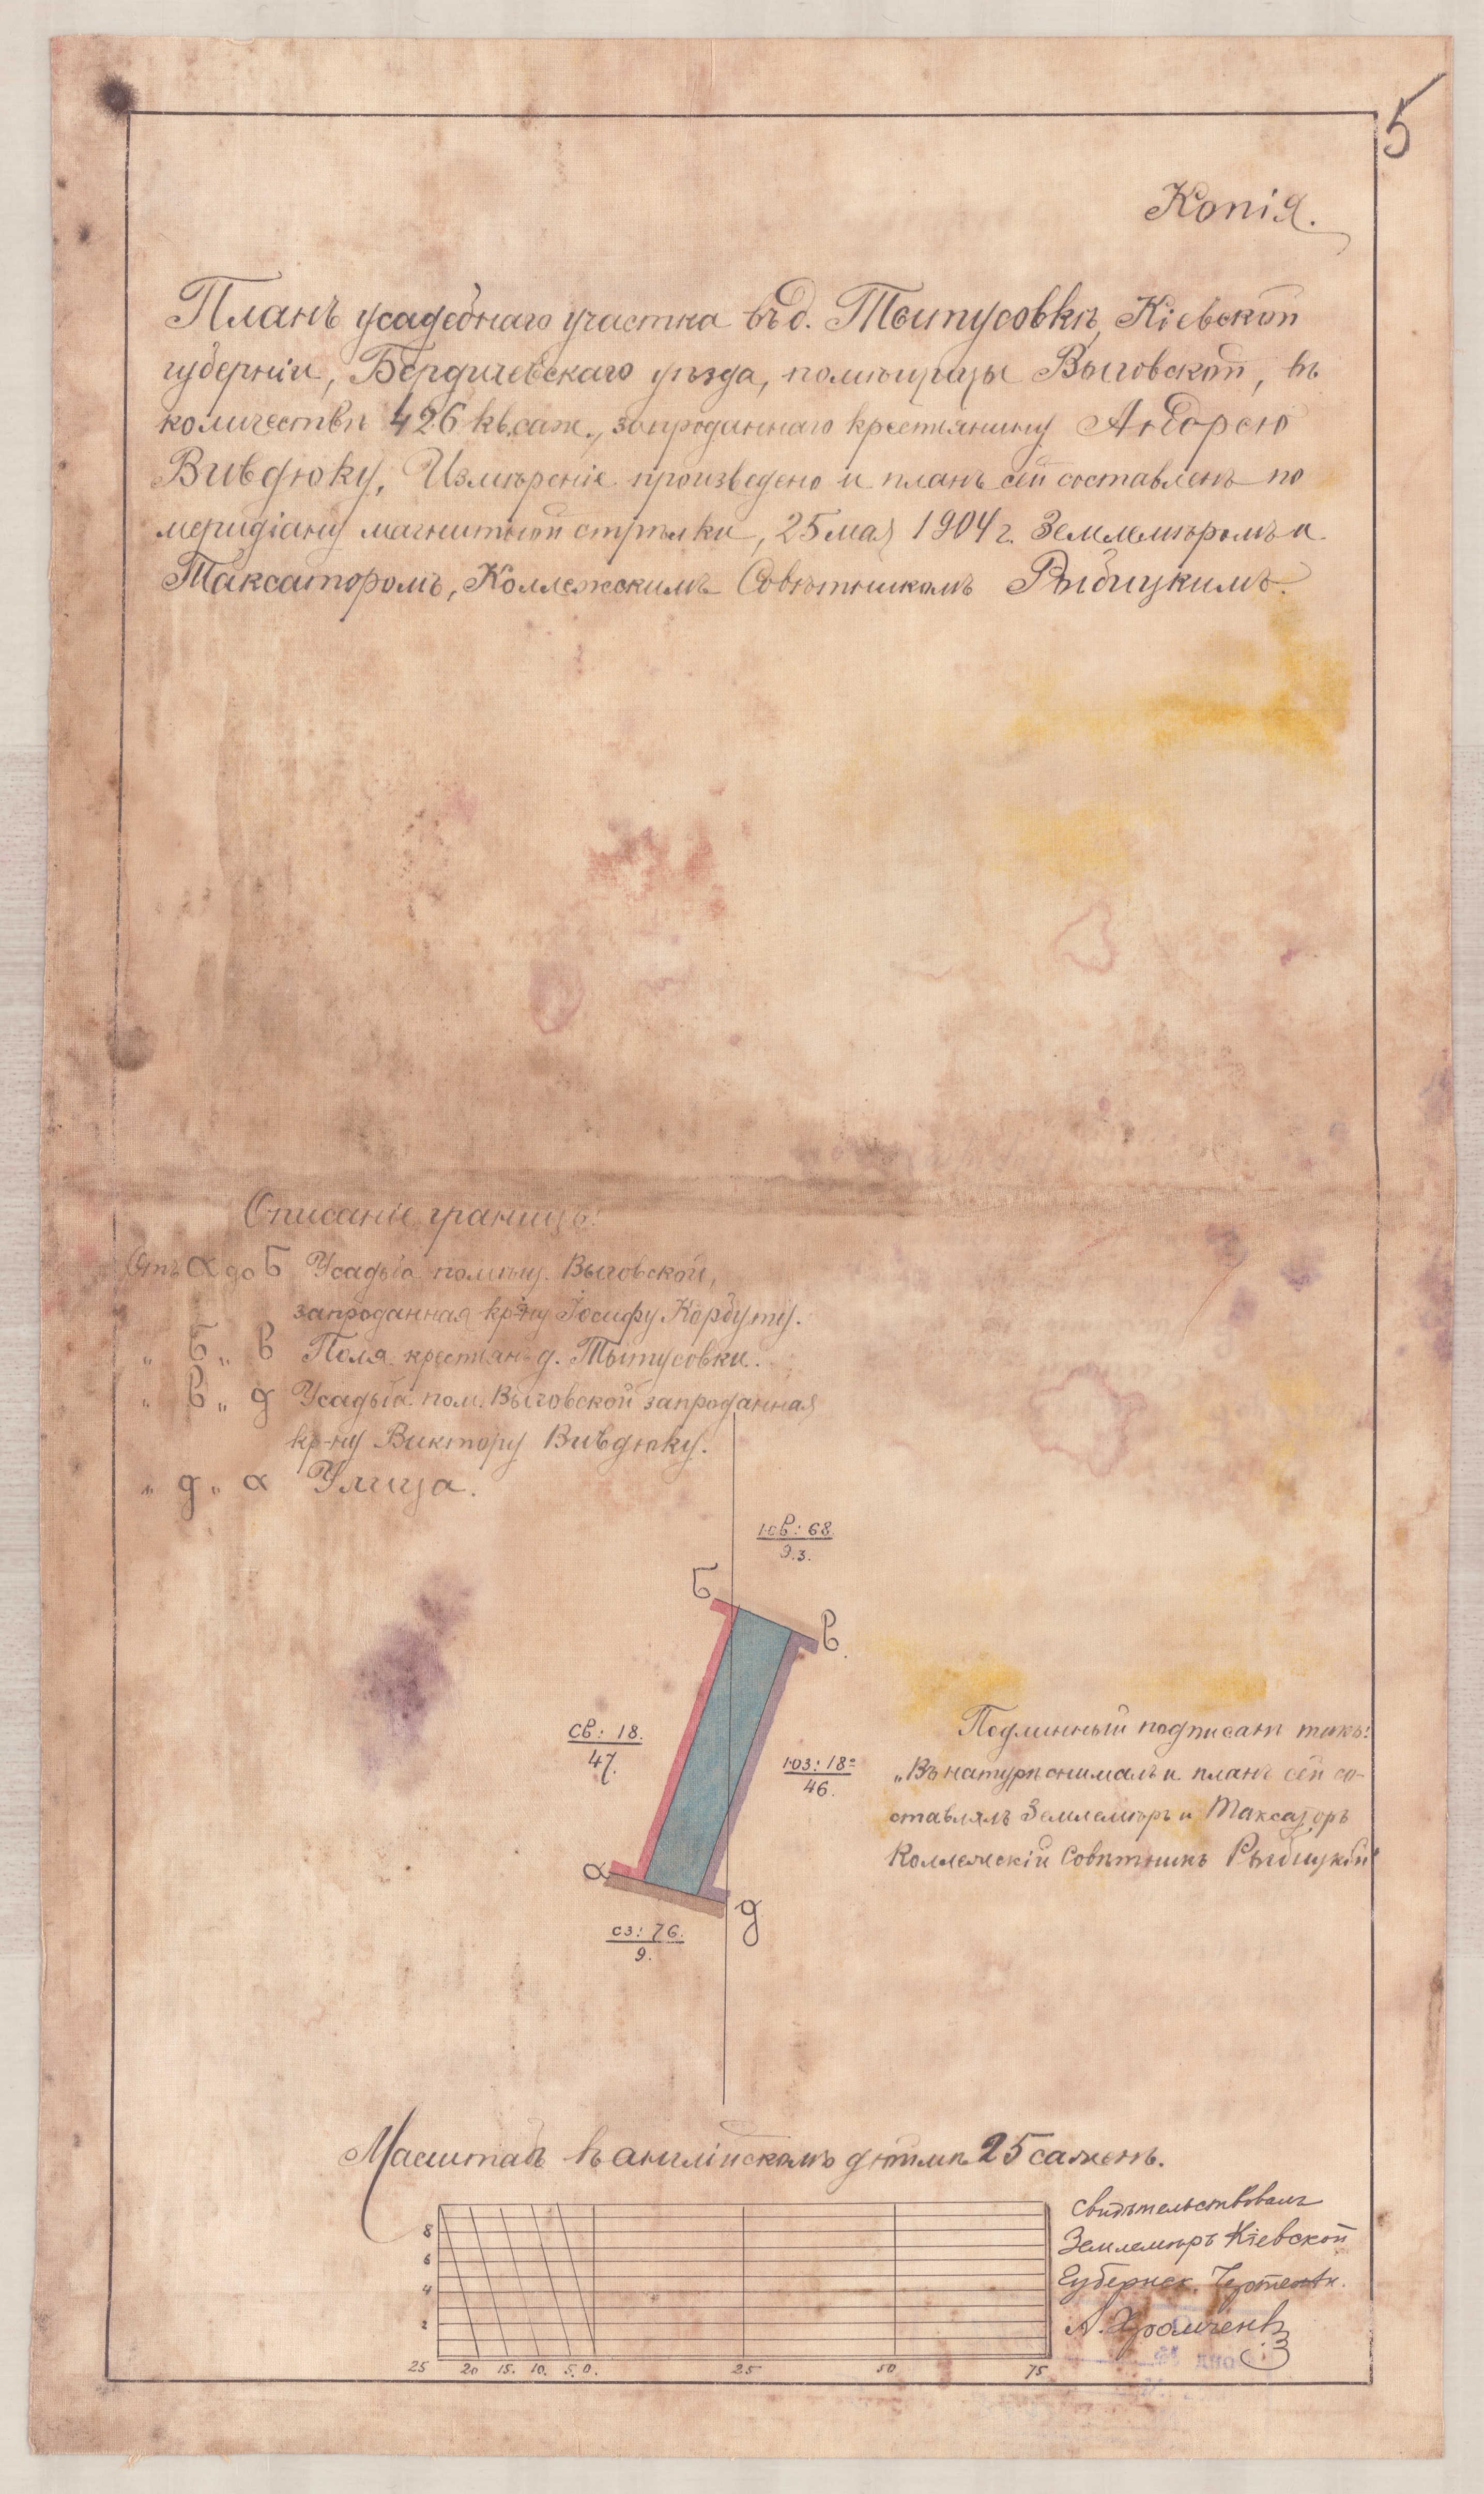 5
Копія.
Планъ усадебнаго участка въ д. Тытусовкѣ, Кіевской
губерніи, Бердичевскаго уѣзда, помѣщицы Выговской, въ
количествѣ 426 кв. саж., запроданнаго крестьянину Андрею
Вивдюку. Измѣреніе произведено и планъ сей составленъ по
меридіану магнитной стрѣлки, 25 мая 1904 г. Землемѣромъ и
Таксаторомъ, Коллежскимъ Совѣтникомъ Рыбицкимъ.
Описаніе границъ:
Отъ а до Б Усадьба помѣщ. Выговской,
запроданная кр-ну Іосифу Корбуту.
„ Б „ В Поля крестьян д. Тытусовки.
„ В „ д Усадьба пом. Выговской запроданная
кр-ну Виктору Вивдюку.
„ д „ а Улица.
ЮВ: 68
9.3.
Б
В
СВ: 18.
47.
ЮЗ: 18°
46.
а
д
СЗ: 76.
9.
Подлинный подписалъ такъ:
„Въ натурѣ снималъ и планъ сей со-
ставлялъ Землемѣръ и Таксаторъ
Коллежскій Совѣтникъ Рыбицкій“
Масштабъ въ англійскомъ дюймѣ 25 саженъ.
8
6
4
2
25 20 15. 10. 5. 0. 25 50 75
Свидѣтельствовалъ
Землемѣръ Кіевской
Губернск. Чертежн.